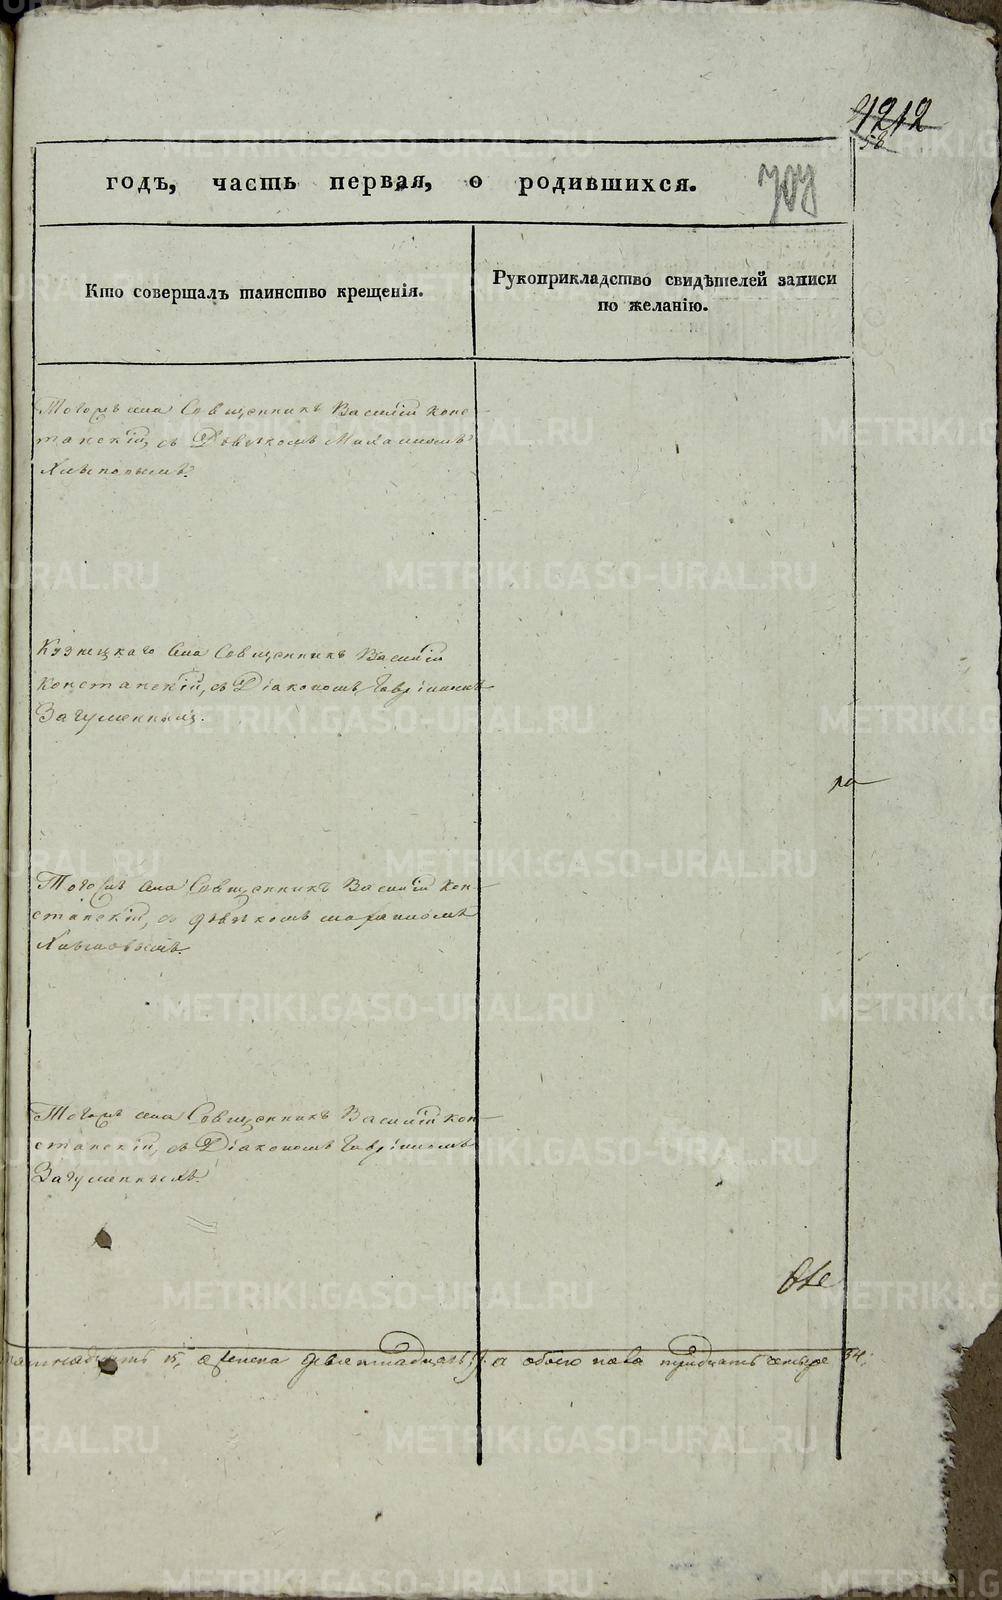 1212
58
годъ, часть первая, о родившихся.
707
Кто совершалъ таинство крещенія.
Рукоприкладство свидѣтелей записи
по желанію.
Тогожъ села Священникъ Василій Конс-
танскій, съ Дьячкомъ Михаиломъ
Кузнецкаго села Священникъ Василій
Констанскій, съ Діакономъ Гавріиломъ
Загуменныхъ.
Тогожъ села Священникъ Василій Кон-
станскій, съ дьячкомъ Михаиломъ
Тогожъ села Священникъ Василій Кон-
станскій, съ Діакономъ Гавріиломъ
Загуменныхъ.
ра
15, а женска девятнадцать 19. а обоего пола тридцать четыре 34.
METRIKI.GASO-URAL.RU